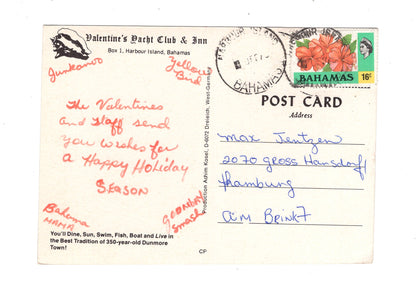 Valentine's Yacht Club & Inn
Box 1, Harbour Island, Bahamas
Junkanoo
Yellow Bird
The Valentines
and Staff send
you wishes for
a Happy Holiday
Season
Bahama
MAMA
GOOMBAY
Smash
You'll Dine, Sun, Swim, Fish, Boat and Live in
the Best Tradition of 350-year-old Dunmore
Town!
CP
Production Achim Kosel, D-6072 Dreieich, West-Germany
HARBOUR ISLAND
BAHAMAS
BAHAMAS 16c
POST CARD
Address
Max Jentzen
2070 Gross Hansdorf
Hamburg
AM Brink 7